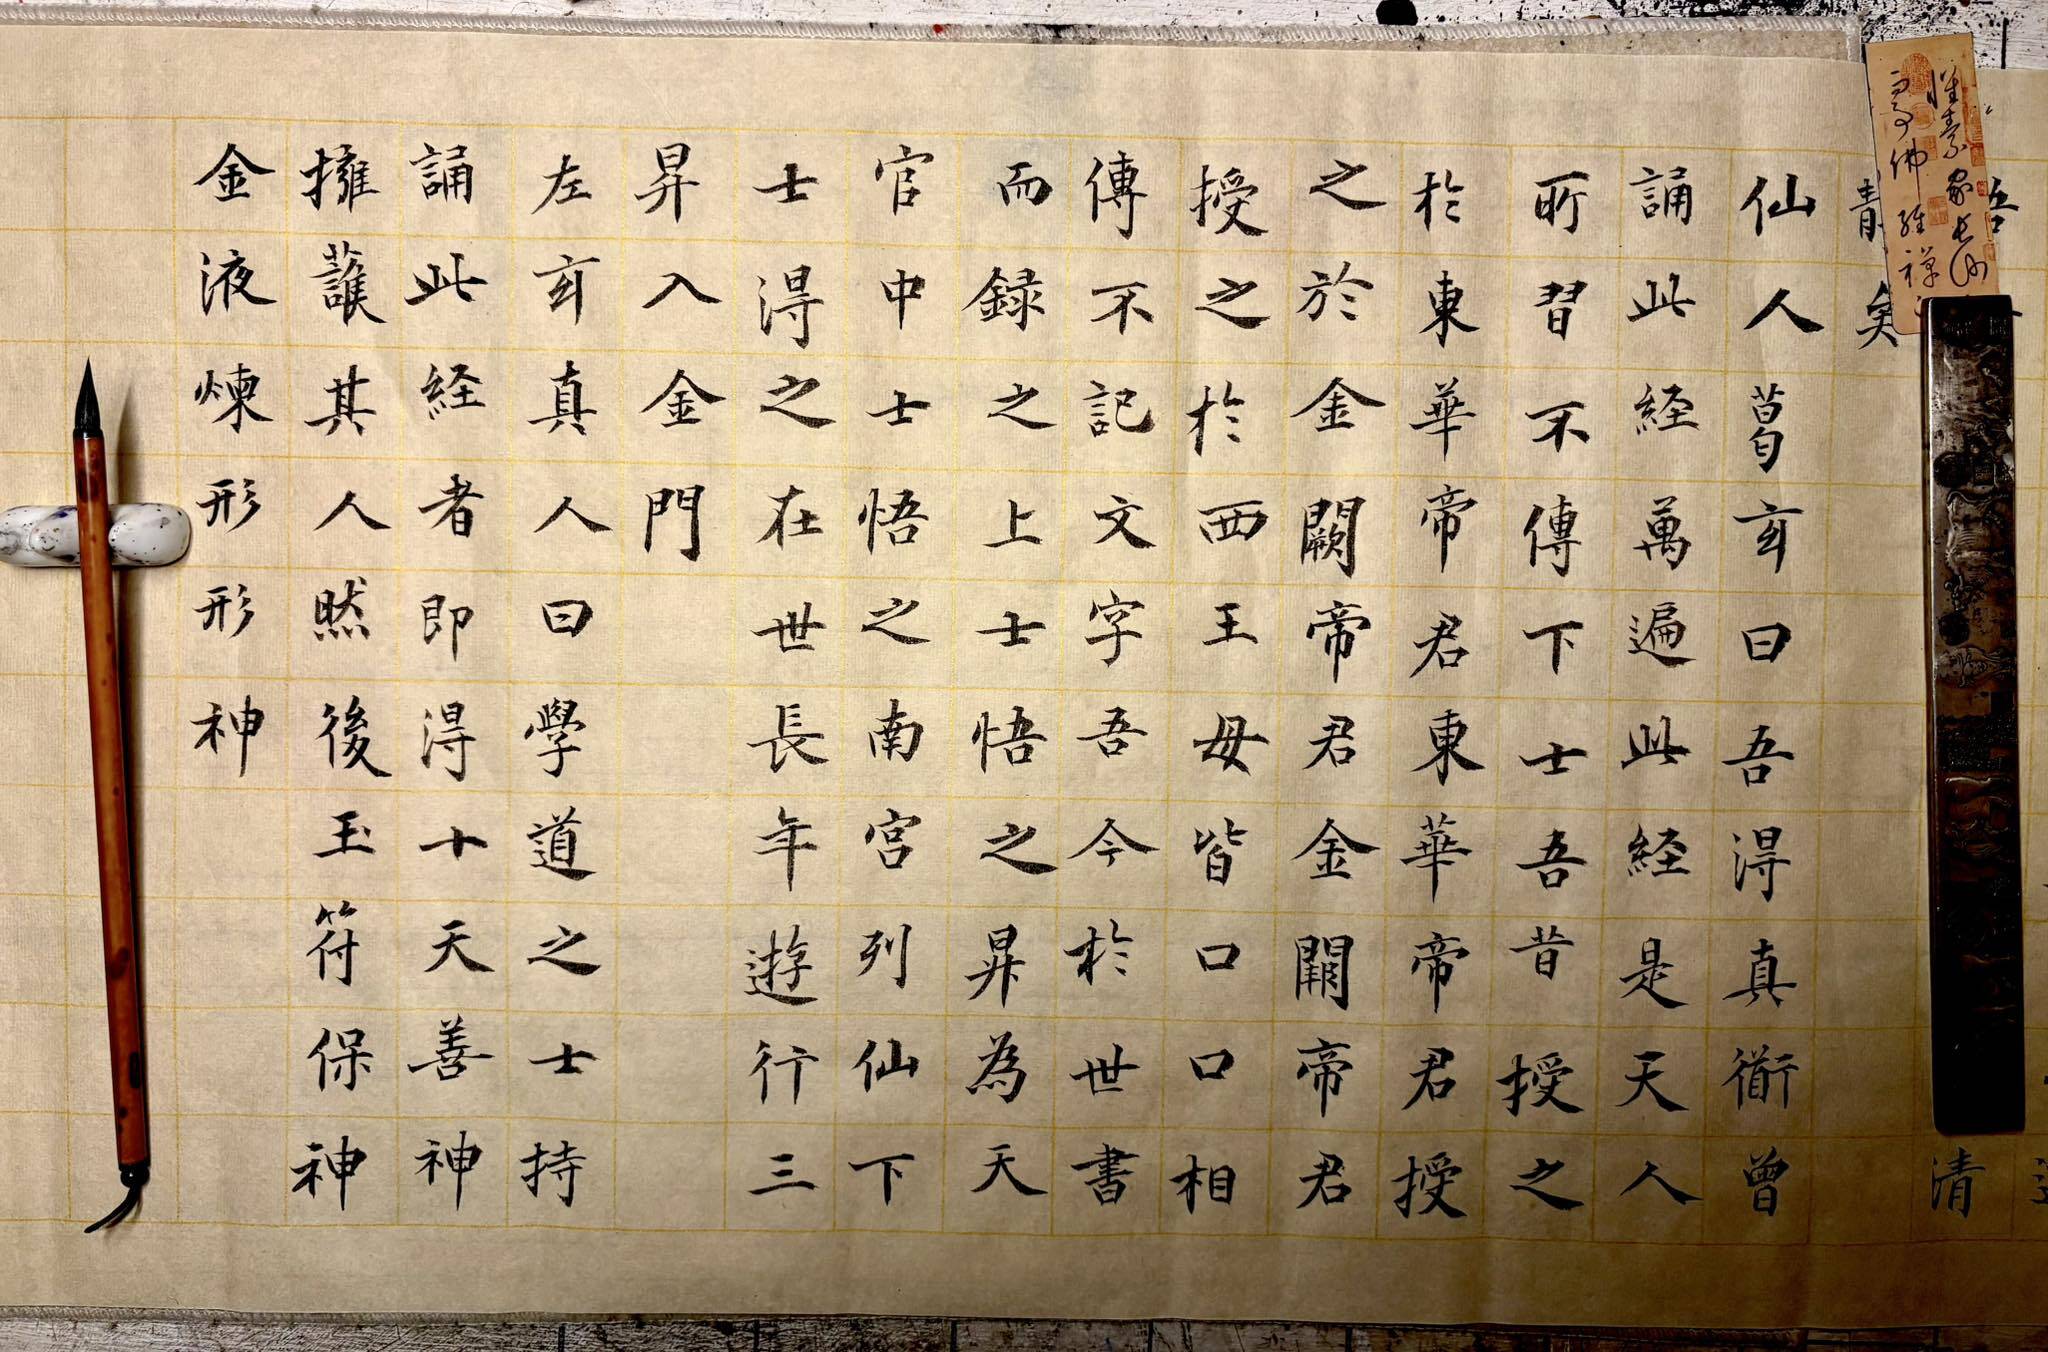 懷素家長沙
事佛経禪
吾
清
矣
仙人葛玄曰吾得真衜曾
誦此経萬遍此経是天人
所習不傳下士吾昔授之
於東華帝君東華帝君授
之於金闕帝君金闕帝君
授之於西王母皆口口相
傳不記文字吾今於世書
而録之上士悟之昇為天
官中士悟之南宮列仙下
士得之在世長年遊行三
昇入金門
左玄真人曰學道之士持
誦此経者即得十天善神
擁護其人然後玉符保神
金液煉形形神